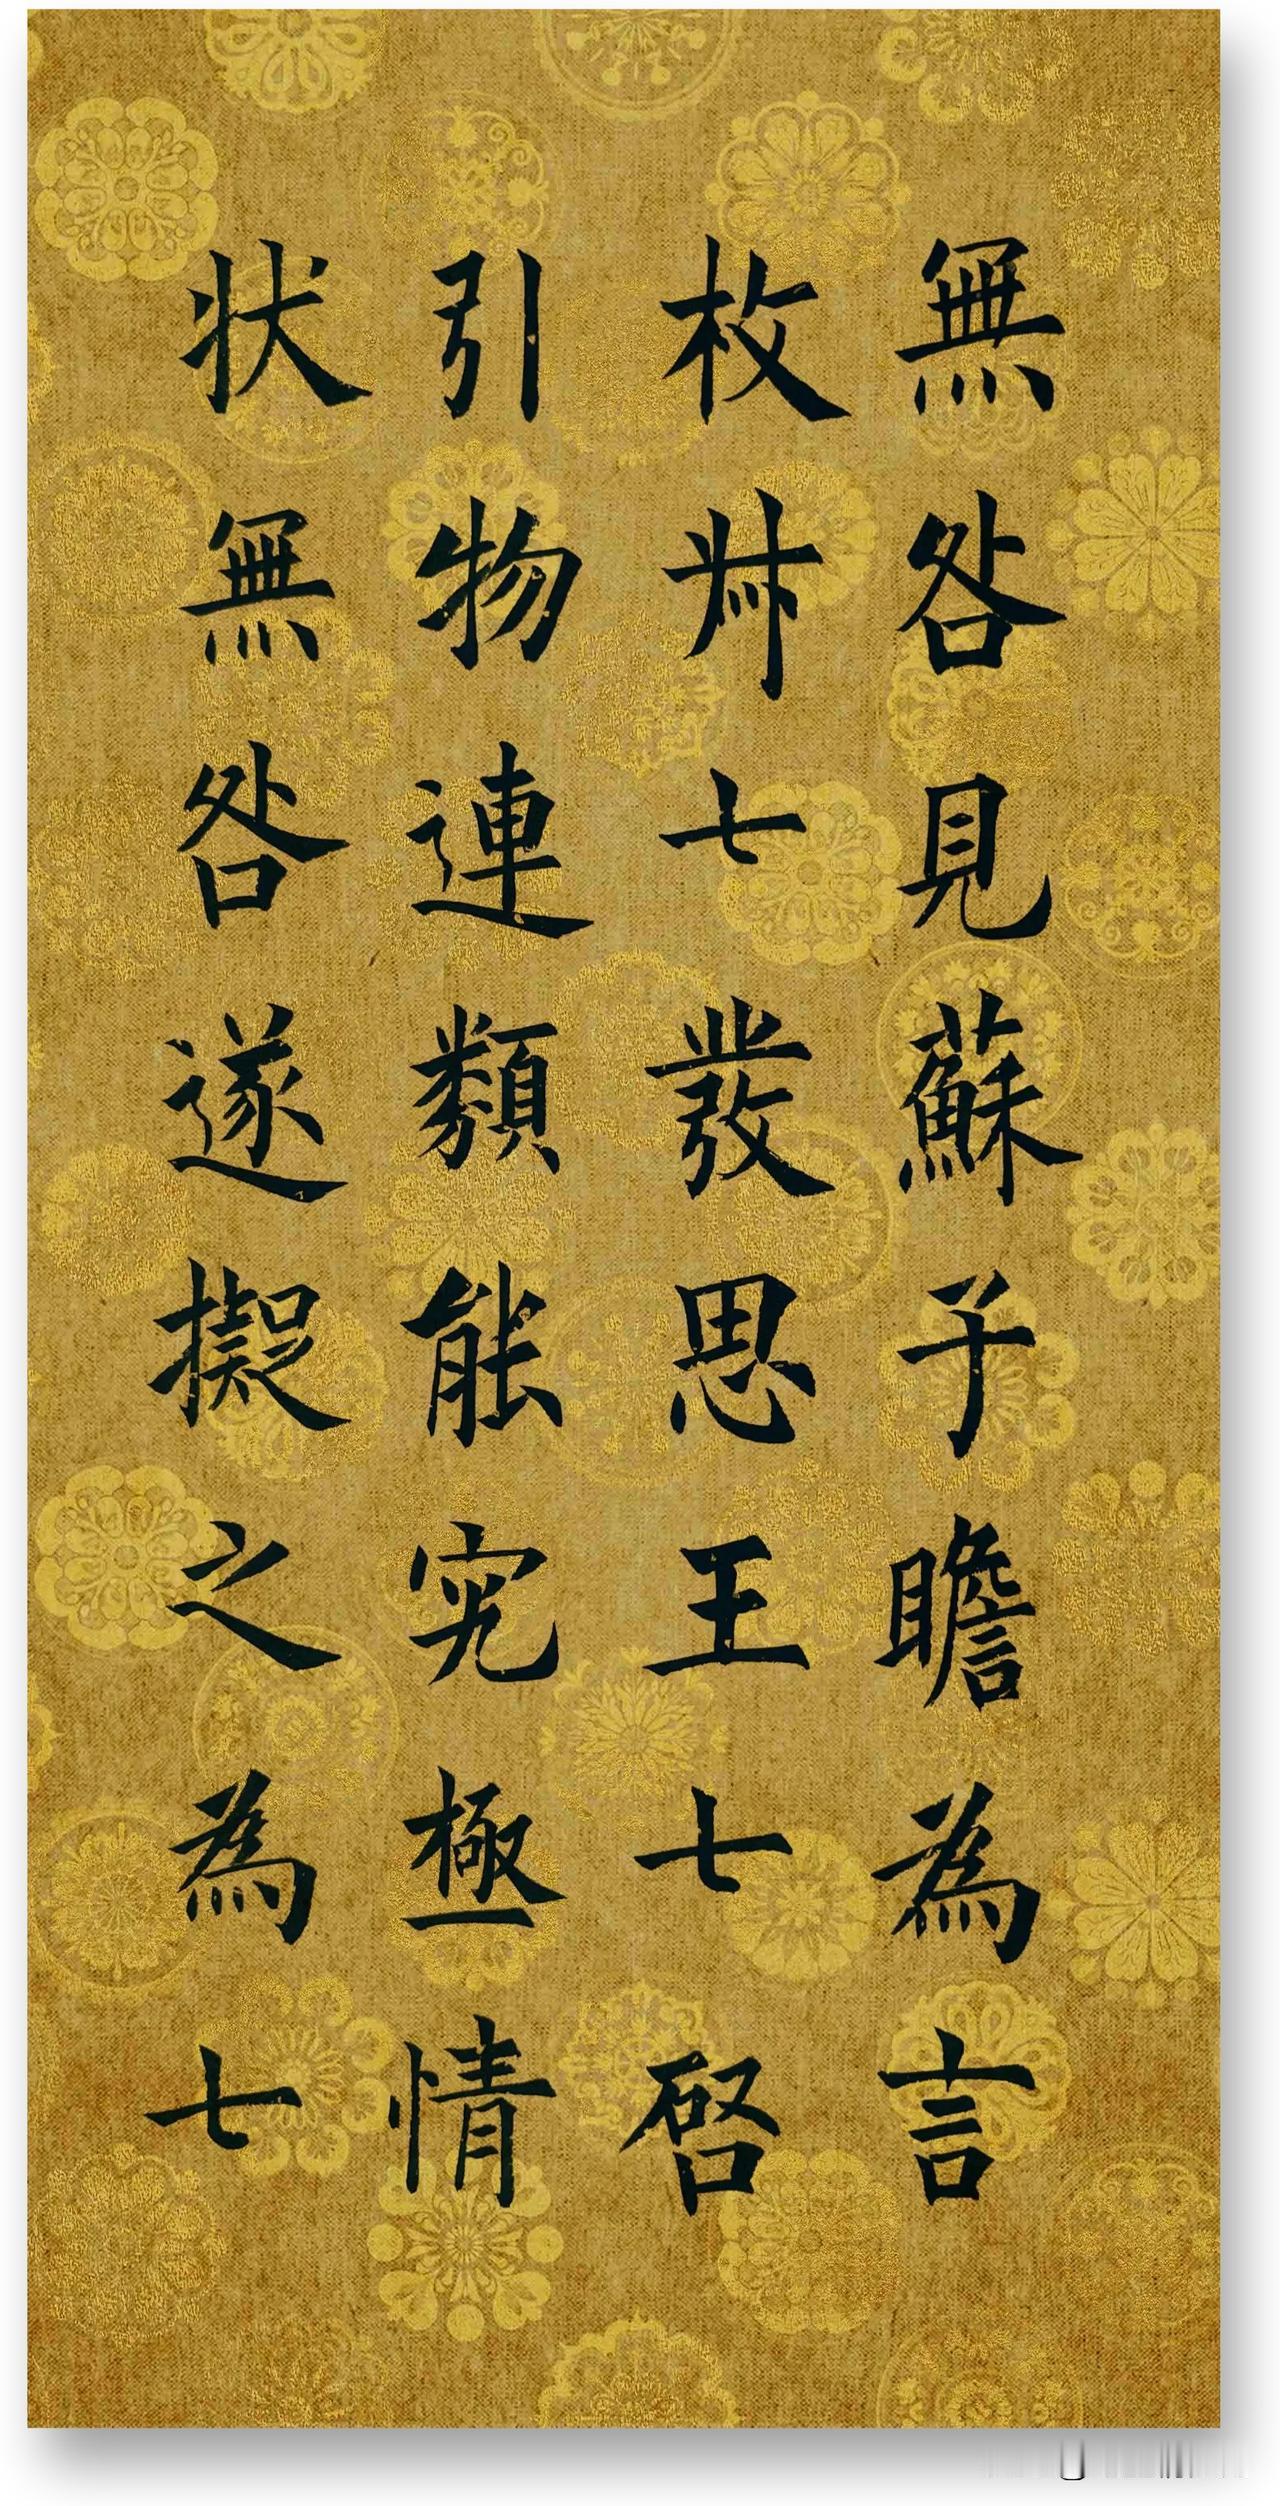 無咎見蘇子瞻為言
枚叔七發思王七啓
引物連類能究極情
狀無咎遂擬之為七